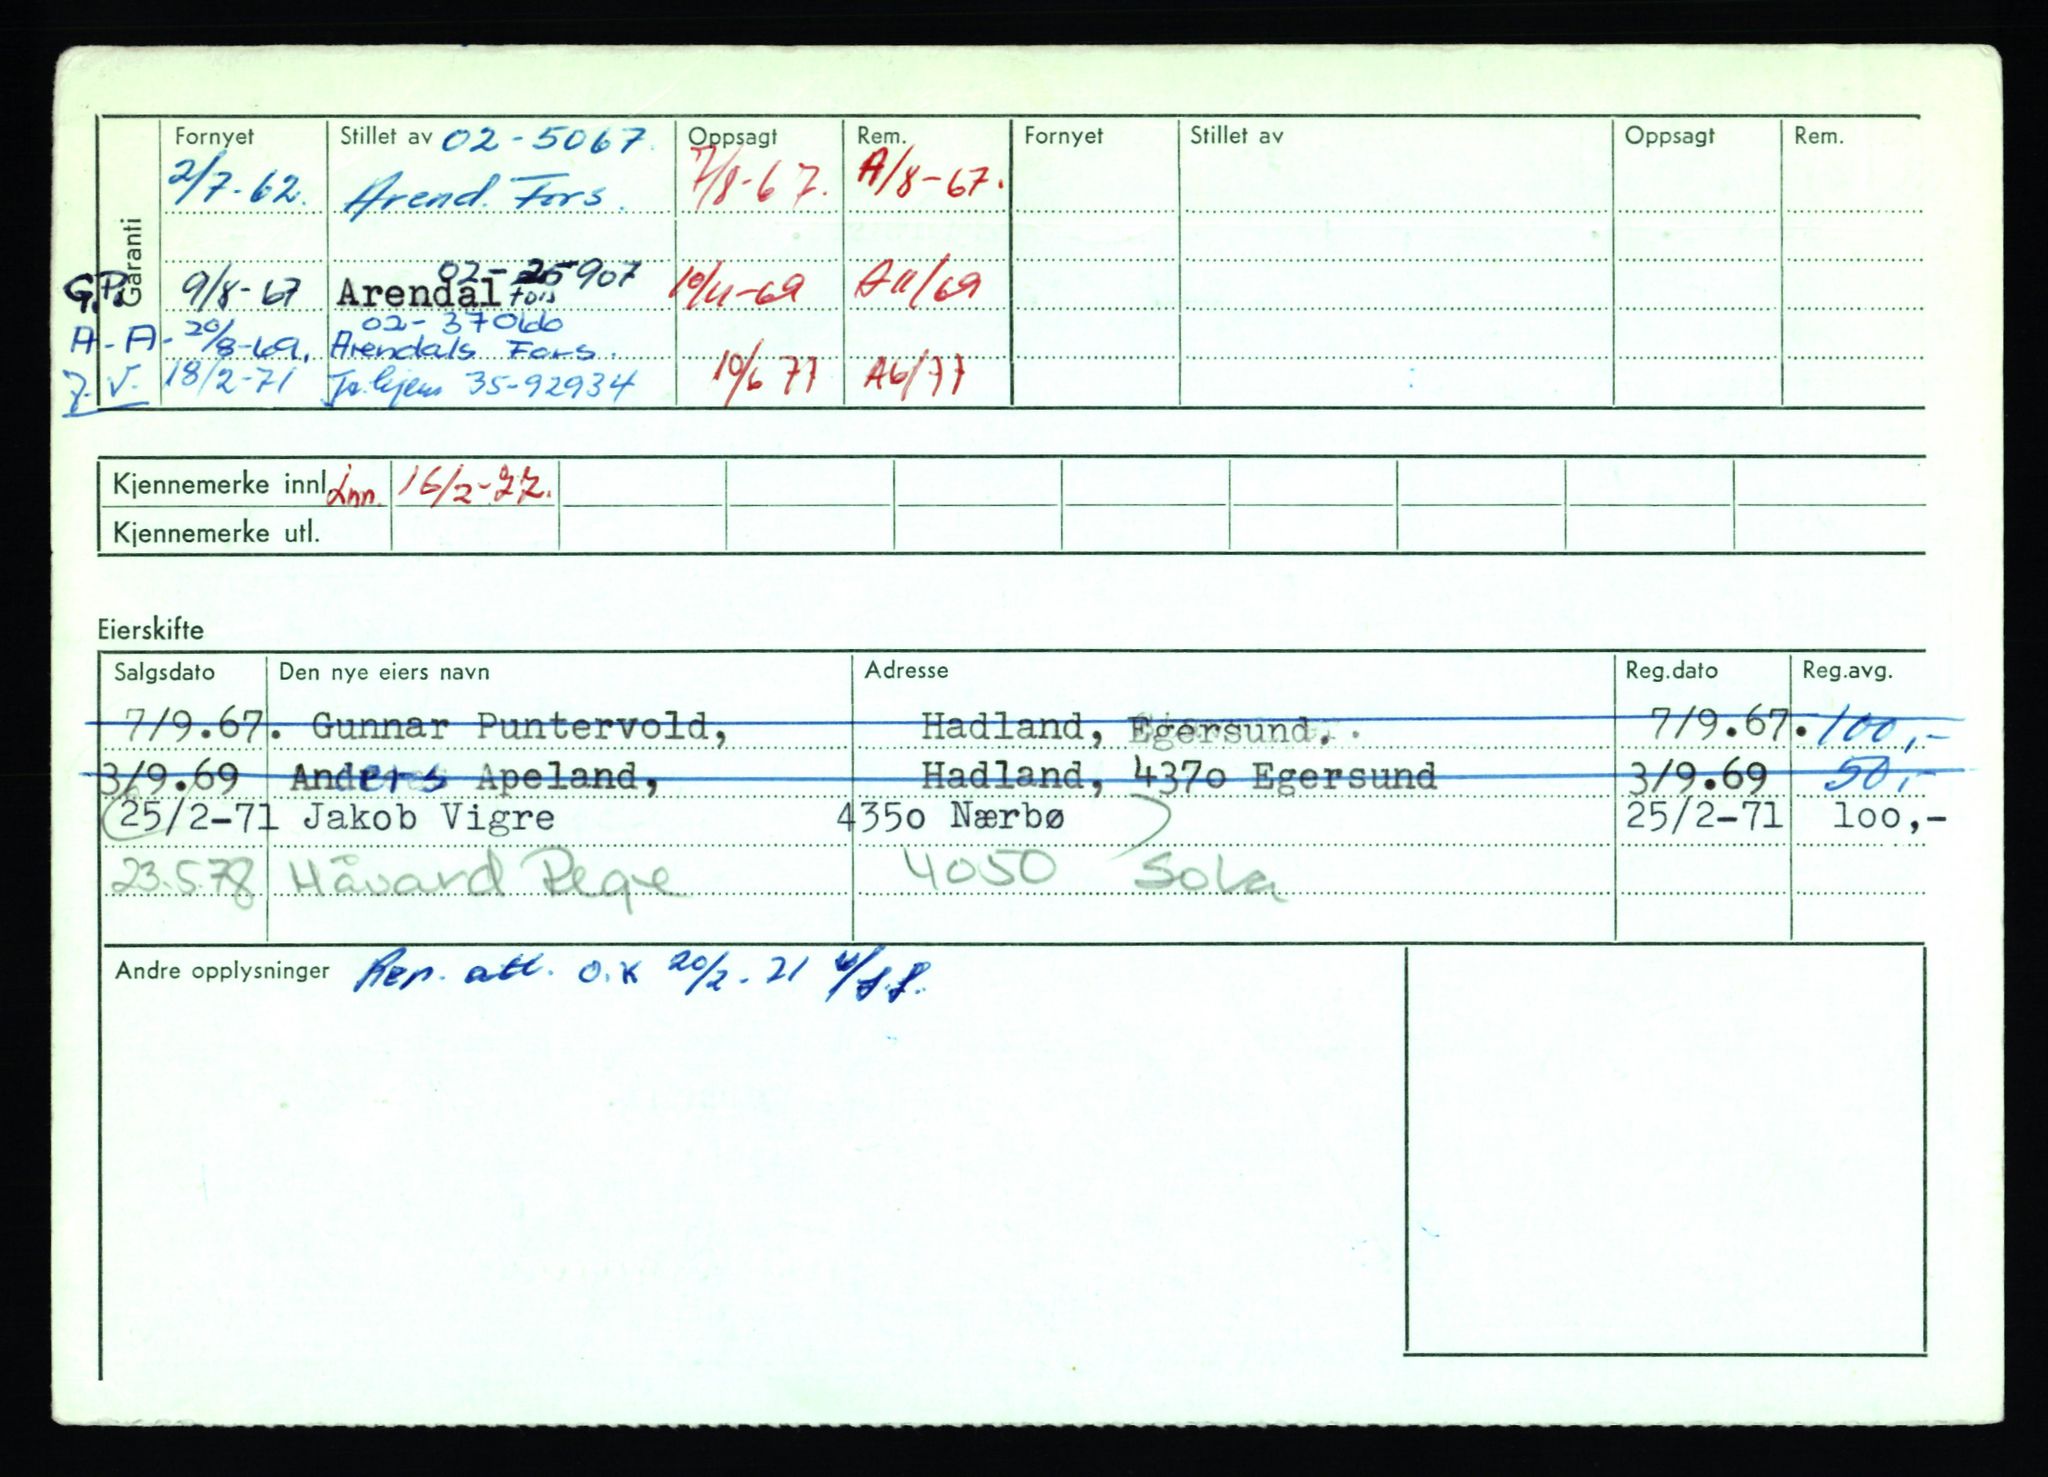 Garanti
Fornyet Stillet av 02-5067. Oppsagt Rem. Fornyet Stillet av Oppsagt Rem.
2/7-62. Arend. Fors. 7/8-67. A/8-67.
02-25907
G.P. 9/8-67 Arendal Fors 10/11-69 A11/69
02-37066
A-A- 20/8-69. Arendals Fors.
J.V. 18/2-71 35-92934 10/6 77 A6/77
Kjennemerke innl. Inn. 16/2-77.
Kjennemerke utl.
Eierskifte
Salgsdato Den nye eiers navn Adresse Reg.dato Reg.avg.
7/9.67. Gunnar Puntervold, Hadland, Egersund. 7/9.67. 100,-
3/9.69 Anders Apeland, Hadland, 4370 Egersund 3/9.69 50,-
25/2-71 Jakob Vigre 4350 Nærbø 25/2-71 100,-
23.5.78 Håvard Pege 4050 Sola
Andre opplysninger Rep. att. O.K 20/2-71